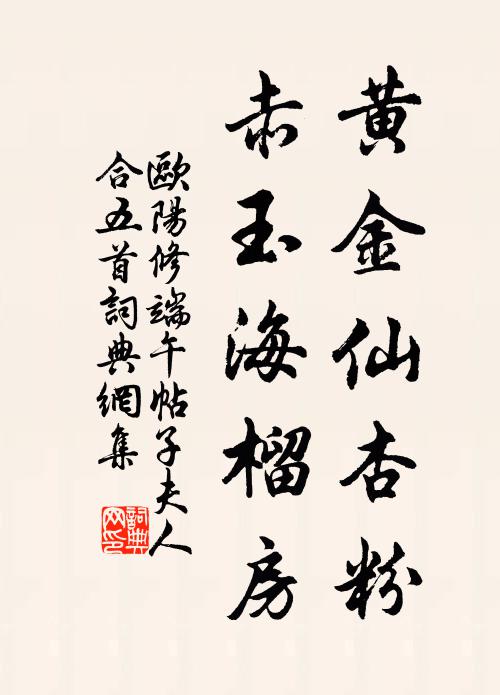 黄金仙杏粉
赤玉海榴房
歐陽修端午帖子夫人
合五首詞典網集
詞典
网印